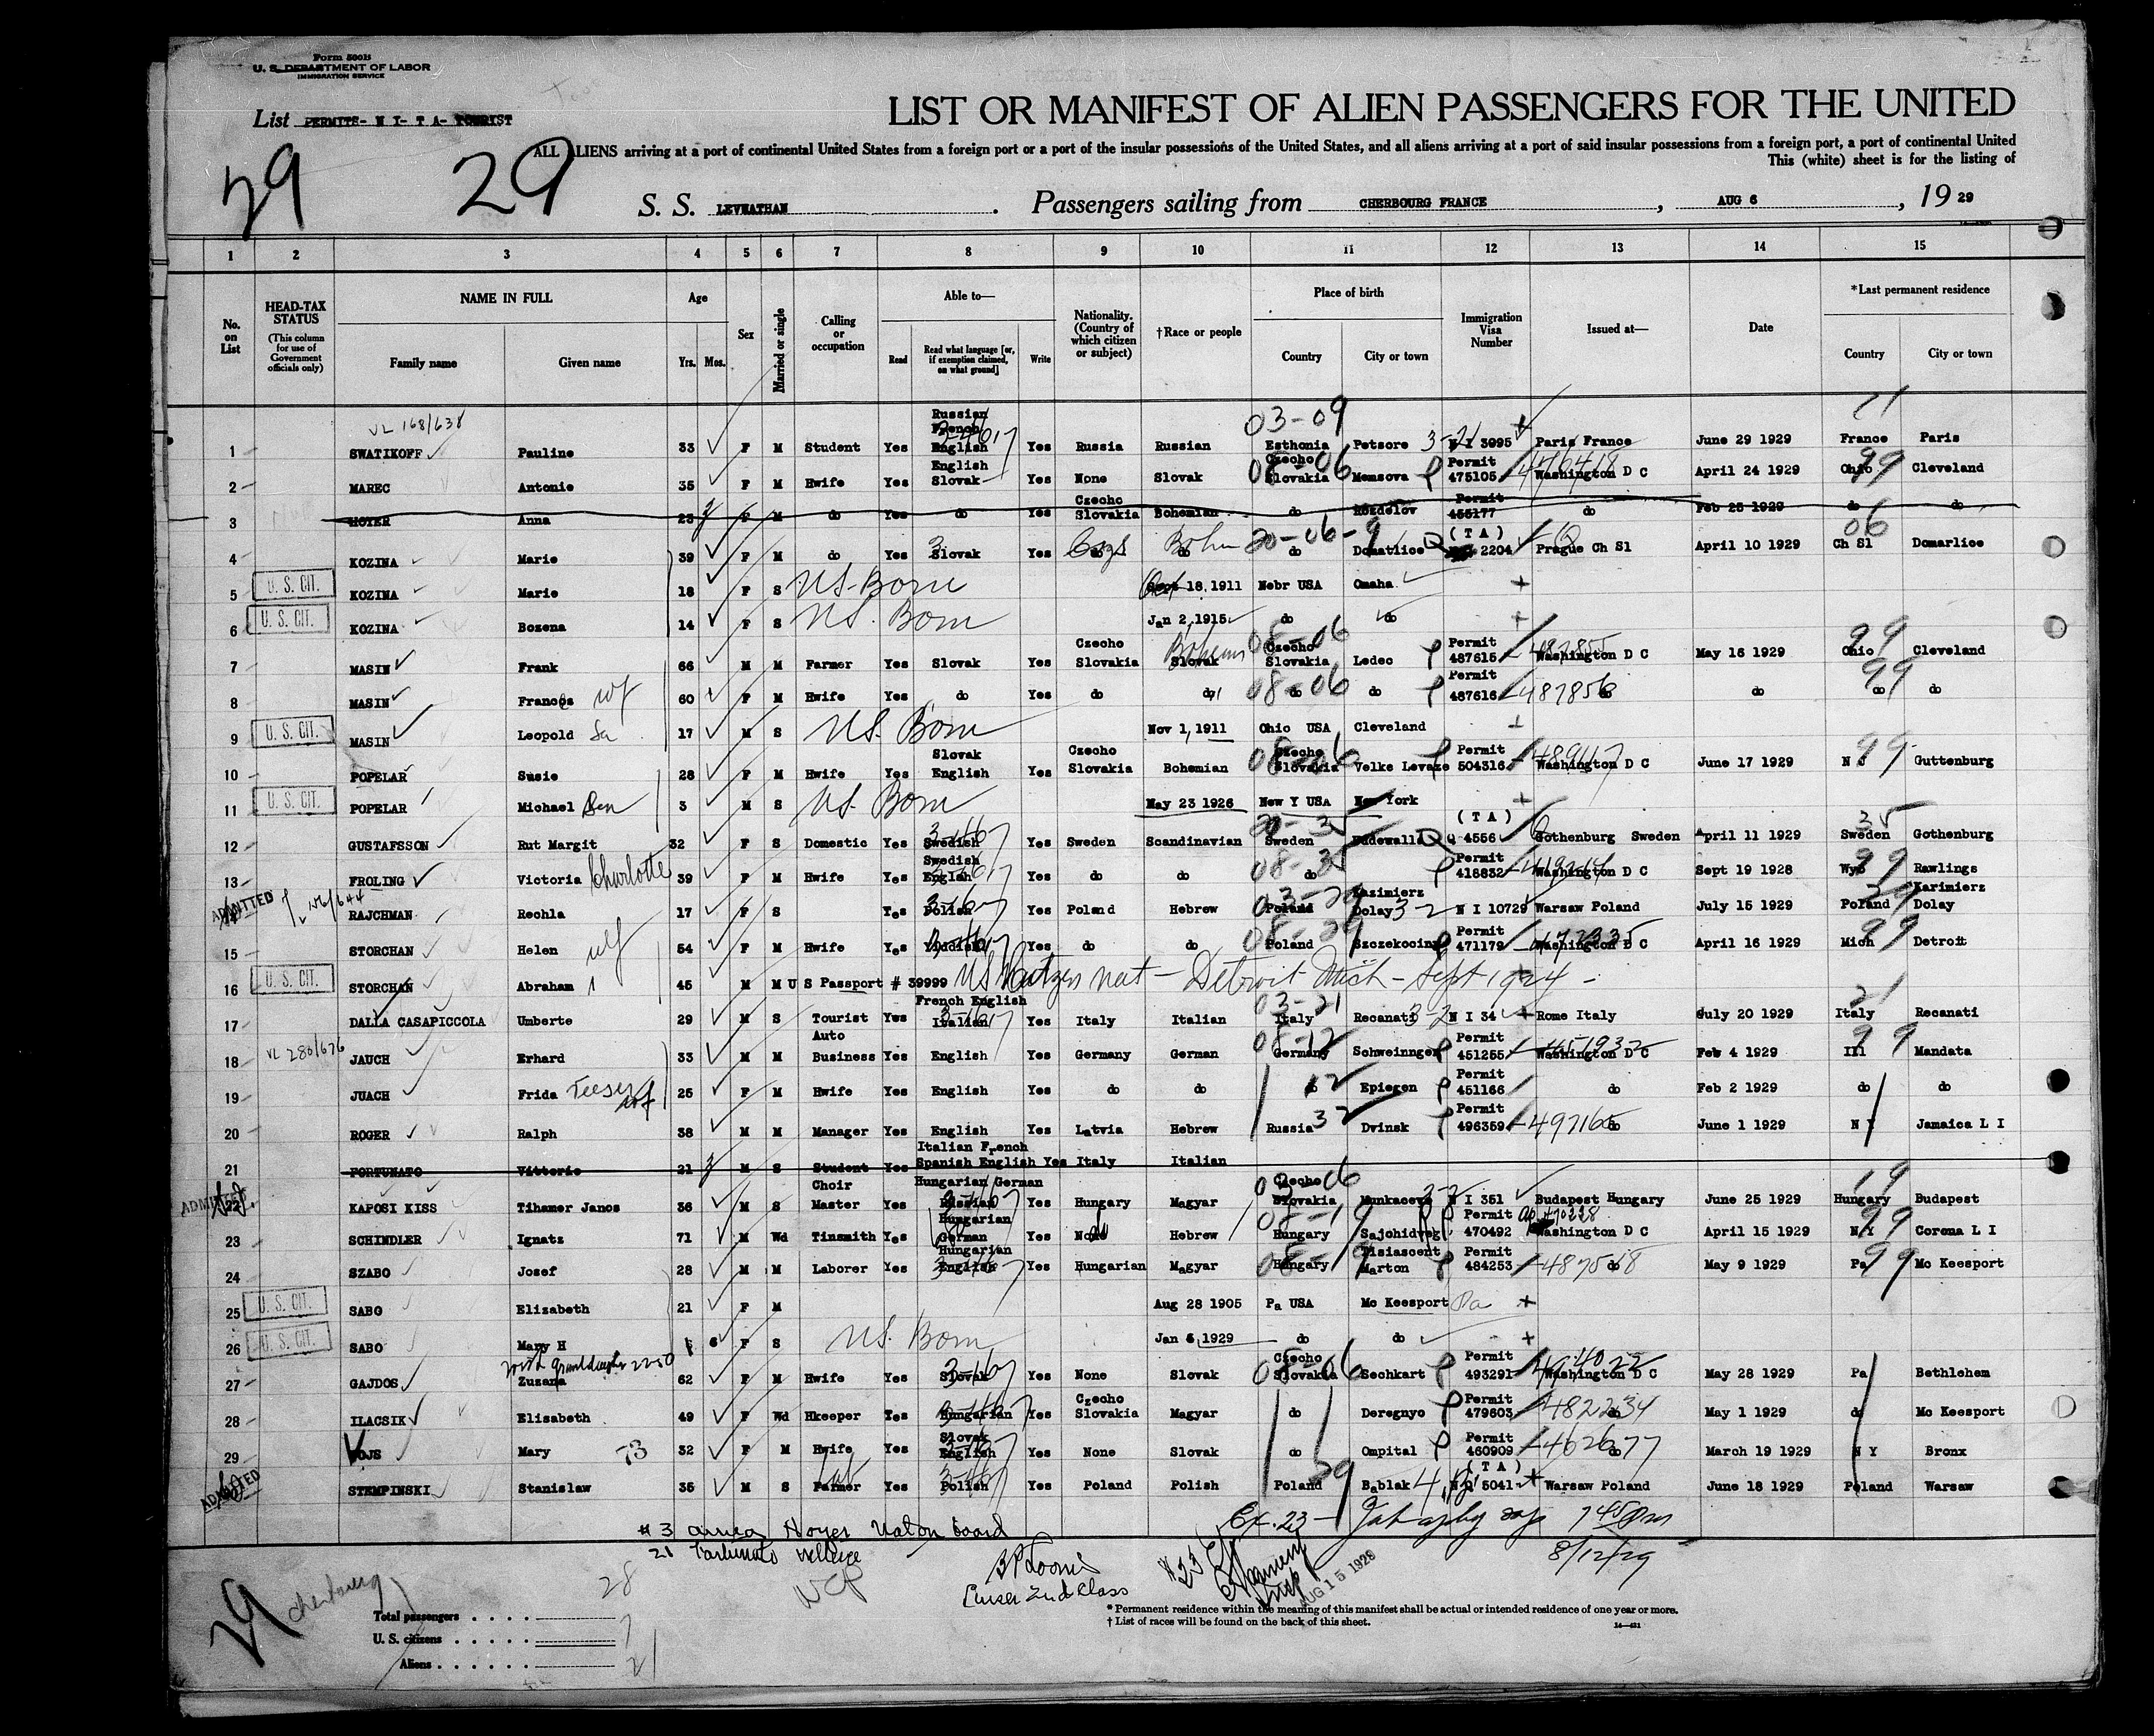 Form 500B
U. S. DEPARTMENT OF LABOR
IMMIGRATION SERVICE
List PERMITS- N I- T A- TOURIST
LIST OR MANIFEST OF ALIEN PASSENGERS FOR THE UNITED
ALL ALIENS arriving at a port of continental United States from a foreign port or a port of the insular possessions of the United States, and all aliens arriving at a port of said insular possessions from a foreign port, a port of continental United
This (white) sheet is for the listing of
29 29
S. S. LEVNATHAN . Passengers sailing from CHERBOURG FRANCE , AUG 6 , 19 29
1 2 3 4 5 6 7 8 9 10 11 12 13 14 15
No. on List
HEAD-TAX STATUS (This column for use of Government officials only)
NAME IN FULL Family name Given name
Age Yrs. Mos.
Sex
Married or single
Calling or occupation
Able to— Read Read what language [or, if exemption claimed, on what ground] Write
Nationality. (Country of which citizen or subject)
†Race or people
Place of birth Country City or town
Immigration Visa Number
Issued at—
Date
*Last permanent residence Country City or town
VL 168/638 03-09
1 SWATIKOFF Pauline 33 F M Student Yes Russian French English Yes Russia Russian Esthonia Petsore 3-2 N I 3995 Paris France June 29 1929 France Paris
2 MAREC Antonie 35 F M Hwife Yes English Slovak Yes None Slovak Czecho Slovakia 08-06 Memsova Permit 475105 Washington D C April 24 1929 Ohio 99 Cleveland
3 HOYER Anna 23 F M do Yes do Yes Czecho Slovakia Bohemian do Rozdelov Permit 455177 do Feb 25 1929 do do
4 KOZINA Marie 39 F M do Yes Slovak Yes do do 20-06-9 do Domatlice (T A) 2204 Prague Ch Sl April 10 1929 06 Ch Sl Domarlice
5 U. S. CIT. KOZINA Marie 18 F S US Born Oct 18, 1911 Nebr USA Omaha
6 U. S. CIT. KOZINA Bozena 14 F S US. Born Jan 2, 1915 do do
7 MASIN Frank 66 M M Farmer Yes Slovak Yes Czecho Slovakia Slovak 08-06 Czecho Slovakia Ledec Permit 487615 487855 Washington D C May 16 1929 99 Ohio Cleveland
8 MASIN Frances wf 60 F M Hwife Yes do Yes do do 08-06 do do Permit 487616 487856 do do 99 do do
9 U. S. CIT. MASIN Leopold So 17 M S US. Born Nov 1, 1911 Ohio USA Cleveland
10 POPELAR Susie 28 F M Hwife Yes Slovak English Yes Czecho Slovakia Bohemian Czecho Slovakia 08-06 Velke Levaze Permit 504316 Washington D C June 17 1929 N J 99 Guttenburg
11 U. S. CIT. POPELAR Michael 3 M S US. Born May 23 1926 New Y USA New York
12 GUSTAFSSON Rut Margit 32 F S Domestic Yes Swedish Yes Sweden Scandinavian Sweden Uddewalla (T A) Q 4556 Gothenburg Sweden April 11 1929 35 Sweden Gothenburg
13 FROLING Victoria Charlotte 39 F M Hwife Yes Swedish English Yes do do do Permit 418832 Washington D C Sept 19 1928 Wyo 99 Rawlings
ADMITTED RAJCHMAN Rechla 17 F S Yes Polish Yes Poland Hebrew 03-29 Poland Kazimierz Dolay 3-2 N I 10729 Warsaw Poland July 15 1929 Poland 29 Karimierz Dolay
15 STORCHAN Helen wf 54 F M Hwife Yes Yiddish Yes do do 08-29 Poland Szczekocin Permit 471179 Washington D C April 16 1929 Mich 99 Detroit
16 U. S. CIT. STORCHAN Abraham 45 M M U S Passport # 39999 US Citizen nat - Detroit Mich - Sept 1924 -
17 DALLA CASAPICCOLA Umberte 29 M S Tourist Yes French English Italian Yes Italy Italian 03-21 Italy Recanati 3-2 N I 34 Rome Italy July 20 1929 21 Italy Recanati
VL 280/676
18 JAUCH Erhard 33 M M Auto Business Yes English Yes Germany German 08-12 Germany Schweinngen Permit 451255 451932 Washington D C Feb 4 1929 Ill 99 Mandata
19 JUACH Frida wf 25 F M Hwife Yes English Yes do do 12 do Epiegen Permit 451166 do Feb 2 1929 do do
20 ROGER Ralph 38 M M Manager Yes English Yes Latvia Hebrew Russia 32 Dvinsk Permit 496359 497165 do June 1 1929 N Y Jamaica L I
21 FORTUNATO Vittorio 21 M S Student Yes Italian French Spanish English Yes Italy Italian
ADMITTED 22 KAPOSI KISS Tihamer Janos 36 M S Choir Master Yes Hungarian German Russian Yes Hungary Magyar Czecho Slovakia 06 Munkacevo 3-2 N I 351 Budapest Hungary June 25 1929 19 Hungary Budapest
23 SCHINDLER Ignatz 71 M Wd Tinsmith Yes Hungarian German Yes None Hebrew 08-19 Hungary Sajohidveg Permit 470492 Washington D C April 15 1929 99 N Y Corona L I
24 SZABO Josef 28 M M Laborer Yes Hungarian English Yes Hungarian Magyar Hungary Tisiascent Marton Permit 484253 do May 9 1929 Pa 99 Mc Keesport
25 U. S. CIT. SABO Elizabeth 21 F M Aug 28 1905 Pa USA Mc Keesport Pa
26 U. S. CIT. SABO Mary H 6 F S US. Born Jan 6, 1929 do do
27 GAJDOS Zuzana 62 F M Hwife Yes Slovak Yes None Slovak Czecho Slovakia 08-06 Sechkart Permit 493291 Washington D C May 28 1929 Pa Bethlehem
28 ILACSIK Elisabeth 49 F Wd Hkeeper Yes Hungarian Yes Czecho Slovakia Magyar do Deregnyo Permit 479603 482234 do May 1 1929 do Mc Keesport
29 VOJS Mary 73 32 F M Hwife Yes Slovak English Yes None Slovak do Ompital Permit 460909 462677 do March 19 1929 N Y Bronx
ADMITTED STEMPINSKI Stanislaw 35 M S Farmer Yes Polish Yes Poland Polish Poland 29 Bablak (T A) N Q 5041 Warsaw Poland June 18 1929 Poland Warsaw
# 3 Anna Hoyer Not on board
21 Fortunato
8/12/29
2nd Class
# 23
AUG 15 1929
29 Cherbourg
Total passengers . . . . 28
U. S. citizens . . . . . 7
Aliens . . . . . . 21
* Permanent residence within the meaning of this manifest shall be actual or intended residence of one year or more.
† List of races will be found on the back of this sheet.
14—431